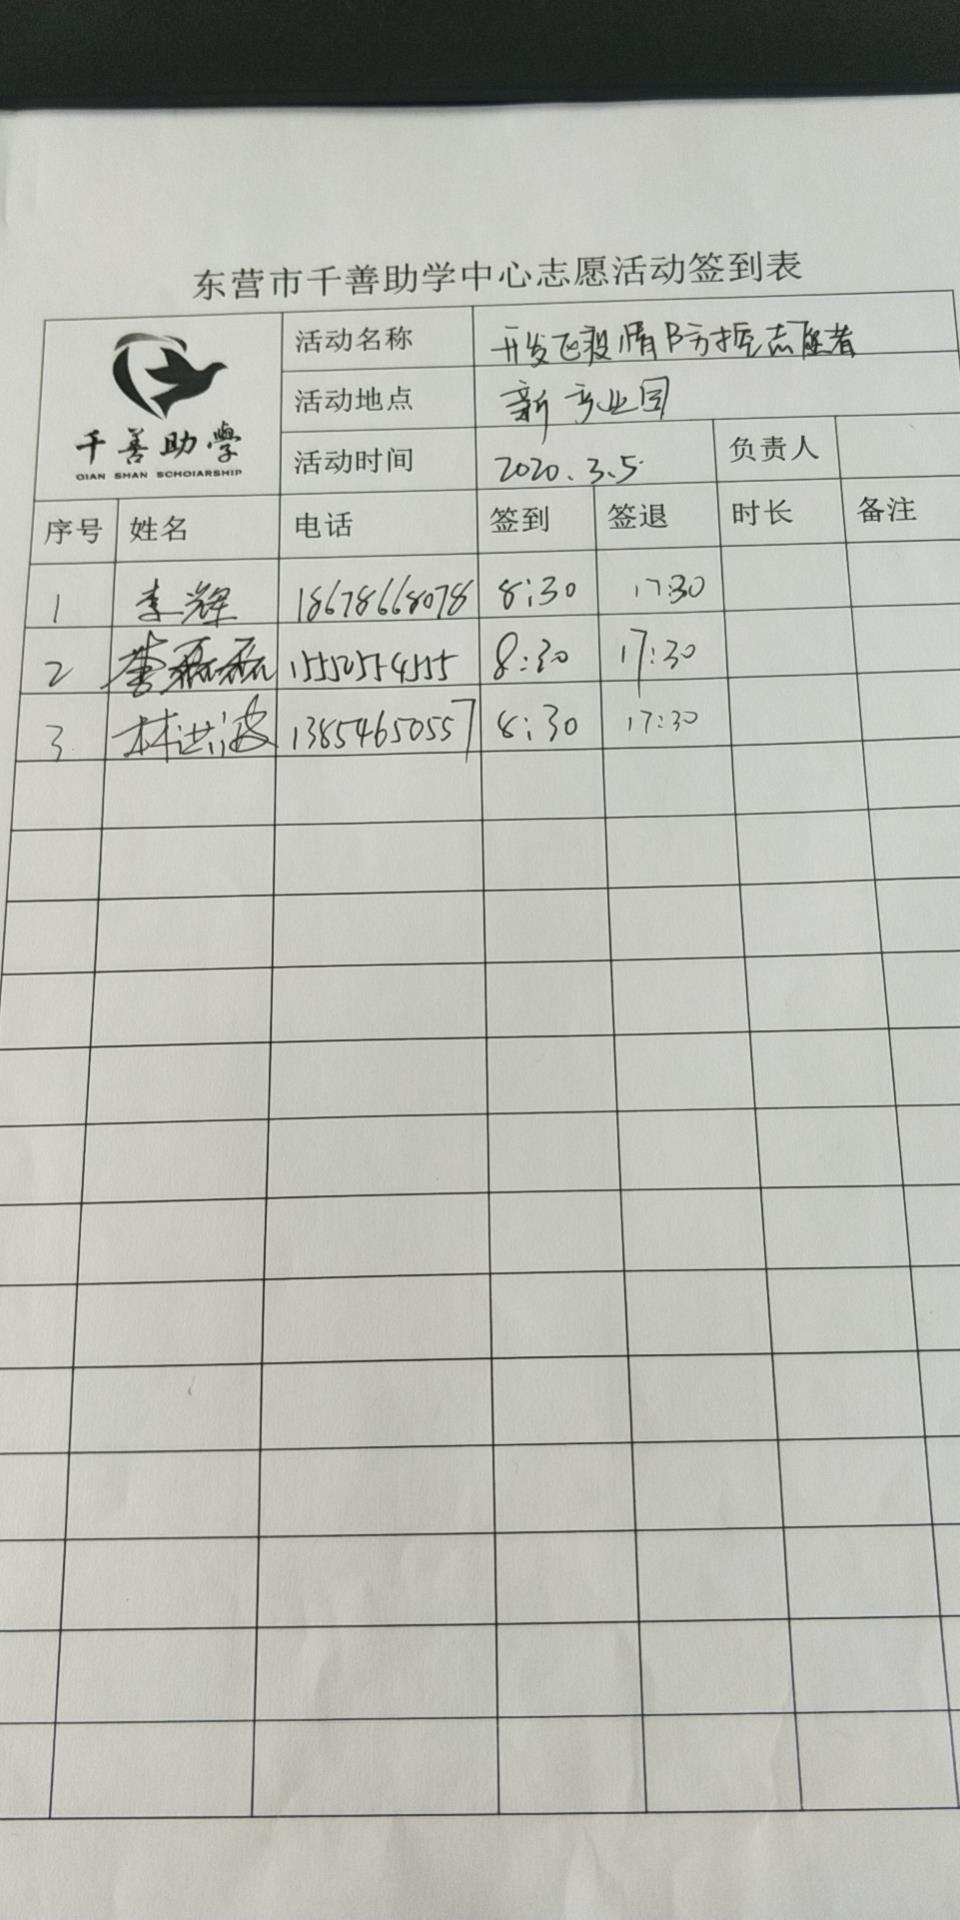 东营市千善助学中心志愿活动签到表
千善助學
QIAN SHAN SCHOIARSHIP
活动名称 开发区疫情防控志愿者
活动地点 新产业园
活动时间 2020.3.5 负责人
序号 姓名 电话 签到 签退 时长 备注
1 李辉 18678668078 8:30 17:30
2 磊磊 15552554555 8:30 17:30
3 林洪波 13854650557 8:30 17:30